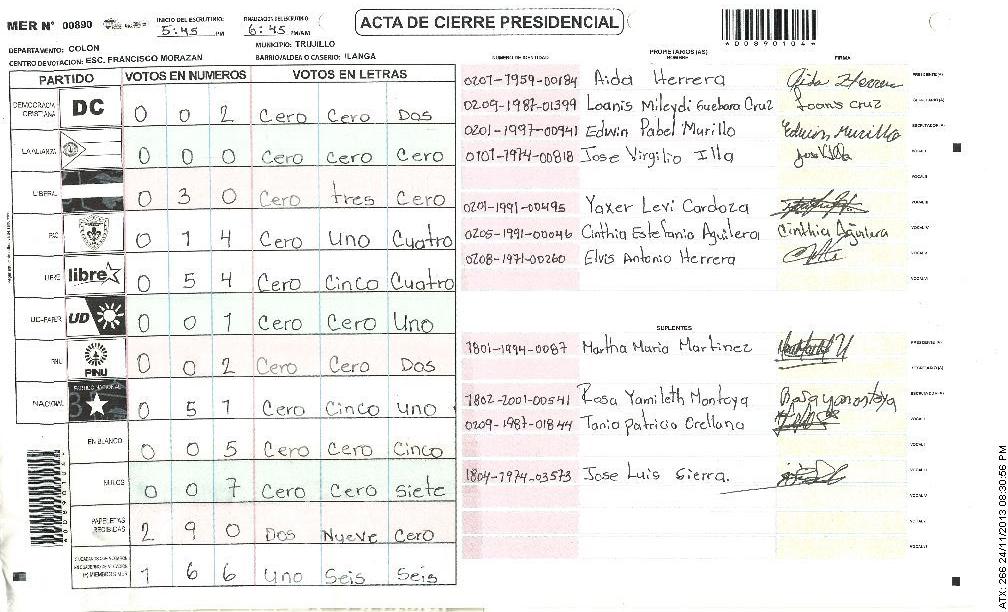 MER N° 00890
INICIO DEL ESCRUTINIO
5:45 PM
FINALIZACION DEL ESCRUTINIO
6:45 PM/AM
ACTA DE CIERRE PRESIDENCIAL
A00890104
DEPARTAMENTO: COLON
MUNICIPIO: TRUJILLO
CENTRO DE VOTACION: ESC. FRANCISCO MORAZAN
BARRIO/ALDEA O CASERIO: ILANGA
PARTIDO VOTOS EN NUMEROS VOTOS EN LETRAS
DEMOCRACIA CRISTIANA DC 0 0 2 Cero Cero Dos
LA ALIANZA 0 0 0 Cero Cero Cero
LIBERAL 0 3 0 Cero tres Cero
PAC 0 1 4 Cero Uno Cuatro
LIBRE libre 0 5 4 Cero Cinco Cuatro
UD-FAPER UD 0 0 1 Cero Cero Uno
PINU PINU 0 0 2 Cero Cero Dos
NACIONAL PARTIDO NACIONAL 0 5 1 Cero Cinco uno
EN BLANCO 0 0 5 Cero Cero Cinco
NULOS 0 0 7 Cero Cero siete
PAPELETAS RECIBIDAS 2 9 0 Dos Nueve Cero
1 6 6 Uno Seis Seis
A00890104
NUMERO DE IDENTIDAD PROPIETARIOS (AS) NOMBRE FIRMA
0201-1959-00184 Aida Herrera Aida Herrera PRESIDENTE(A)
0209-1987-01399 Loanis Mileydi Guebara Cruz Loanis Cruz SECRETARIO(A)
0201-1997-00941 Edwin Pabel Murillo Edwin Murillo ESCRUTADOR(A)
0101-1974-00818 Jose Virgilio Illa VOCAL I
VOCAL II
0201-1991-00495 Yaxer Levi Cardoza VOCAL III
0205-1991-00046 Cinthia Estefania Aguilera Cinthia Aguilera VOCAL IV
0208-1971-00260 Elvis Antonio Herrera VOCAL V
VOCAL VI
SUPLENTES
1801-1994-0087 Martha Maria Martinez PRESIDENTE(A)
SECRETARIO(A)
1802-2001-00541 Rosa Yamileth Montoya ESCRUTADOR(A)
0209-1987-01844 Tania Patricia Orellana VOCAL I
VOCAL II
1804-1974-03573 Jose Luis Sierra. VOCAL III
VOCAL IV
VOCAL V
VOCAL VI
ATX: 266 24/11/2013 08:30:56 PM